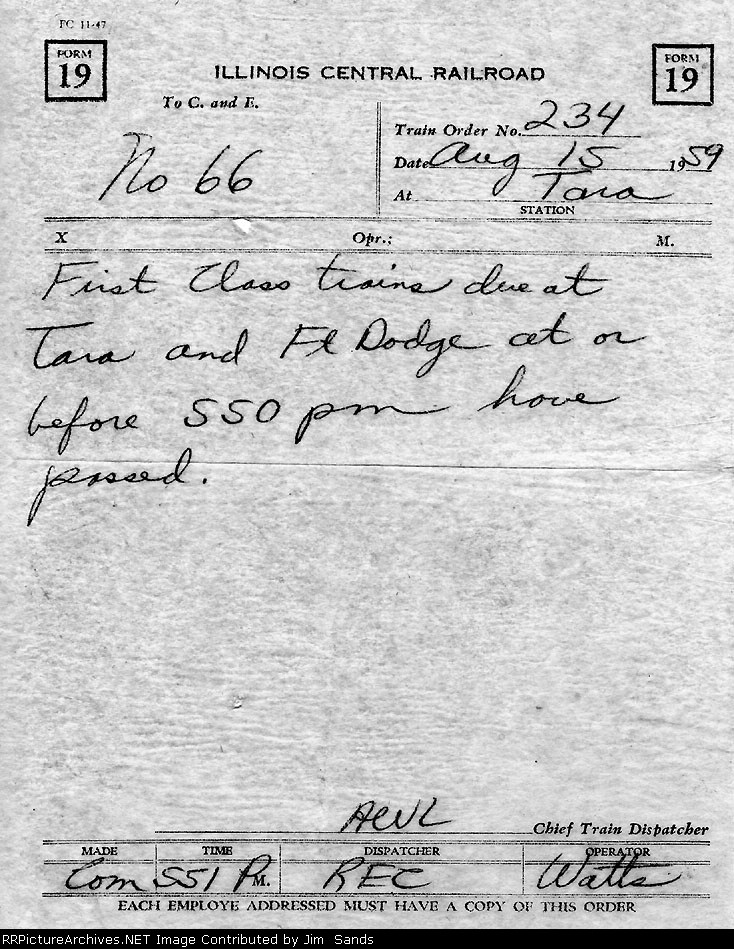 FC 11-47
FORM 19
ILLINOIS CENTRAL RAILROAD
FORM 19
To C. and E.
No 66
Train Order No. 234
Date Aug 15 1959
At Tara
STATION
X Opr.; M.
First Class trains due at
Tara and Ft Dodge at or
before 550 pm have
passed.
Chief Train Dispatcher
MADE TIME DISPATCHER OPERATOR
Com 551 P M. REC Watts
EACH EMPLOYE ADDRESSED MUST HAVE A COPY OF THIS ORDER
RRPictureArchives.NET Image Contributed by Jim Sands